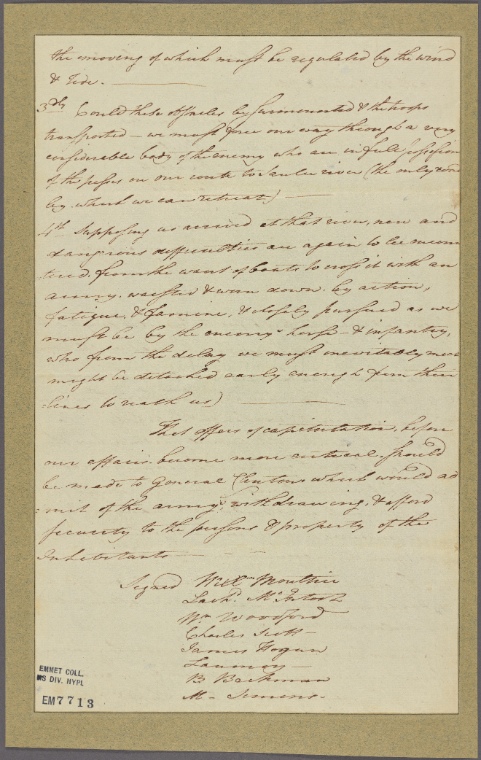 the moving of which must be regulated by the wind
& Tide.
3dly Could these obstacles be surmounted & the troops
transported – we must force our way through a very
considerable body of the enemy who are in full possession
of the passes on our route to Santee river (the only
by which we can retreat)
4th Supposing us arrived at that river, new and
dangerous difficulties are again to be encoun
tered from the want of boats to cross it with an
army, wasted & worn down by action,
fatigue, & famine, & closely pursued as we
must be by the enemys horse & infantry,
who from the delay we must inevitably
might be detached early enough from their
lines to reach us)
That offers of capitulation, before
our affairs become more critical should
be made to General Clinton which would ad
:mit of the army's withdrawing, & afford
security to the persons & property of the
Inhabitants
Signed Willm Moultrie
Lachn McIntosh
Wm Woodford
Charles Scott
James Hogun
Laumoy
B Beckman
M– Simons
EMMET COLL.
MS DIV. NYPL
EM7713